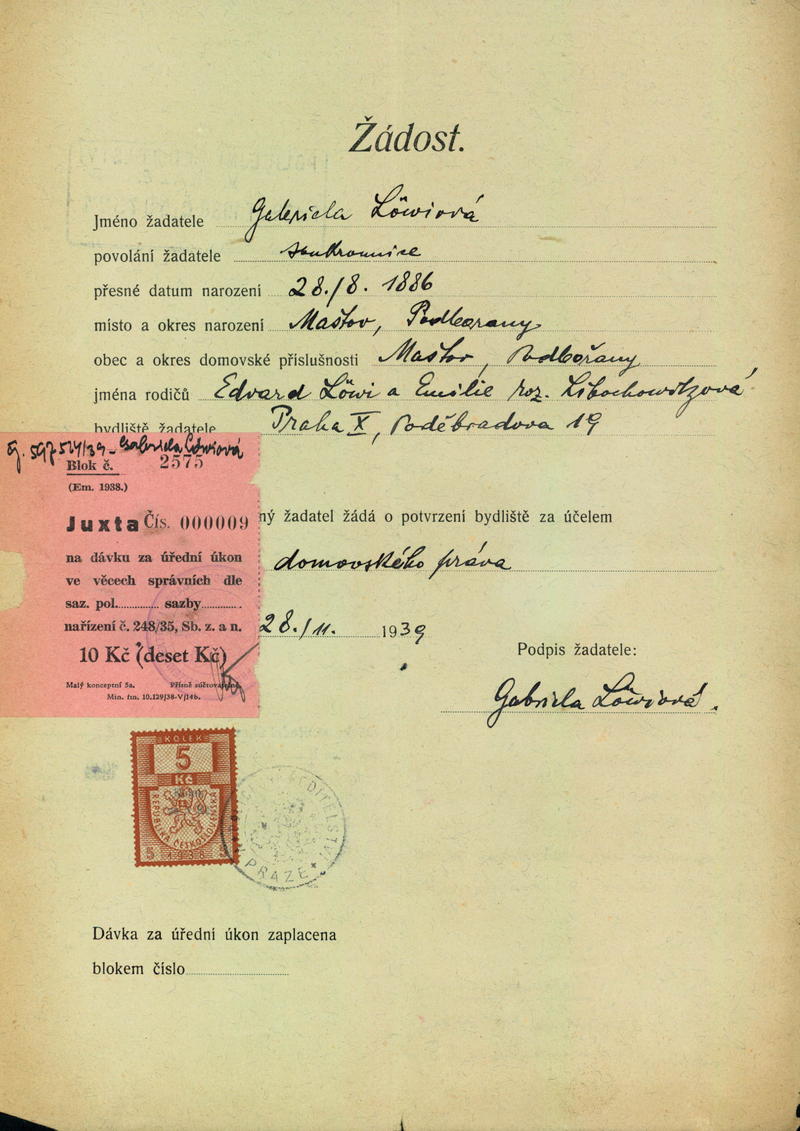 Žádost.
Jméno žadatele Gabriela Löwiová
povolání žadatele soukromnice
přesné datum narození 28./8. 1886
místo a okres narození Maštov, Podbořany
obec a okres domovské příslušnosti Maštov, Podbořany
jména rodičů Edvard Löwi a Emilie roz. Libochowitzová
bydliště žadatele Praha X, Poděbradova 19
Gabriela Löwiová
Blok č. 2575
(Em. 1938.)
Juxta Čís. 000009
ný žadatel žádá o potvrzení bydliště za účelem
na dávku za úřední úkon
domovského práva
ve věcech správních dle
saz. pol. sazby
nařízení č. 248/35, Sb. z. a n.
28./11. 1939
10 Kč (deset Kč)
Podpis žadatele:
Malý konceptní 5a. Přísně súčtovatelné.
Min. fin. 10.129/38-V/14b.
Gabriela Löwiová.
KOLEK
5
Kč
REPUBLIKA ČESKOSLOVENSKÁ
5 1938 5
ŘEDITELSTVÍ
PRAZE
Dávka za úřední úkon zaplacena
blokem číslo